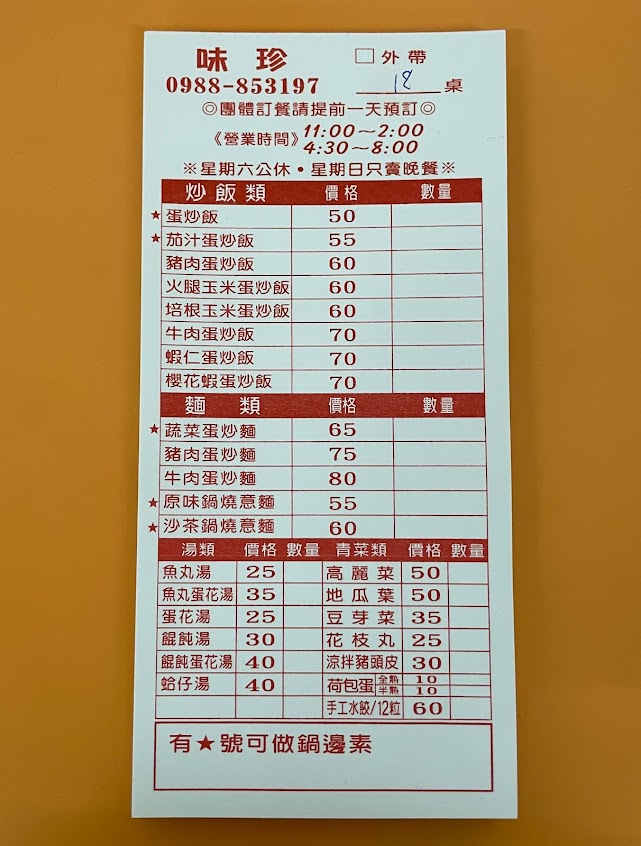 味 珍 □外帶
0988-853197 18 桌
◎團體訂餐請提前一天預訂◎
《營業時間》11:00～2:00
4:30～8:00
※星期六公休•星期日只賣晚餐※
炒飯類 價格 數量
★蛋炒飯 50
★茄汁蛋炒飯 55
豬肉蛋炒飯 60
火腿玉米蛋炒飯 60
培根玉米蛋炒飯 60
牛肉蛋炒飯 70
蝦仁蛋炒飯 70
櫻花蝦蛋炒飯 70
麵類 價格 數量
★蔬菜蛋炒麵 65
豬肉蛋炒麵 75
牛肉蛋炒麵 80
★原味鍋燒意麵 55
★沙茶鍋燒意麵 60
湯類 價格 數量 青菜類 價格 數量
魚丸湯 25 高麗菜 50
魚丸蛋花湯 35 地瓜葉 50
蛋花湯 25 豆芽菜 35
餛飩湯 30 花枝丸 25
餛飩蛋花湯 40 涼拌豬頭皮 30
蛤仔湯 40 荷包蛋 全熟 10
半熟 10
手工水餃/12粒 60
有★號可做鍋邊素